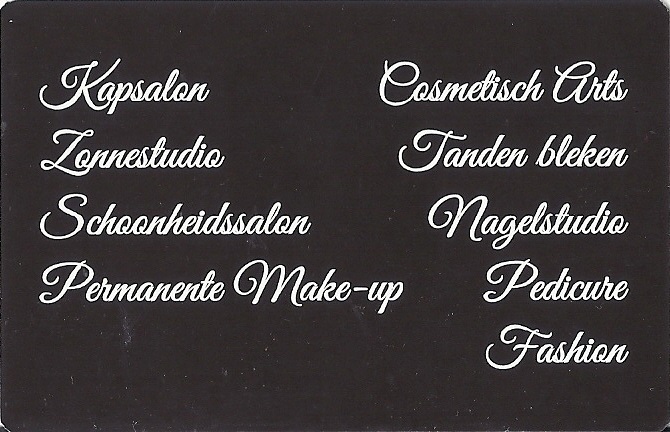 Kapsalon
Zonnestudio
Schoonheidssalon
Permanente Make-up
Cosmetisch Arts
Tanden bleken
Nagelstudio
Pedicure
Fashion